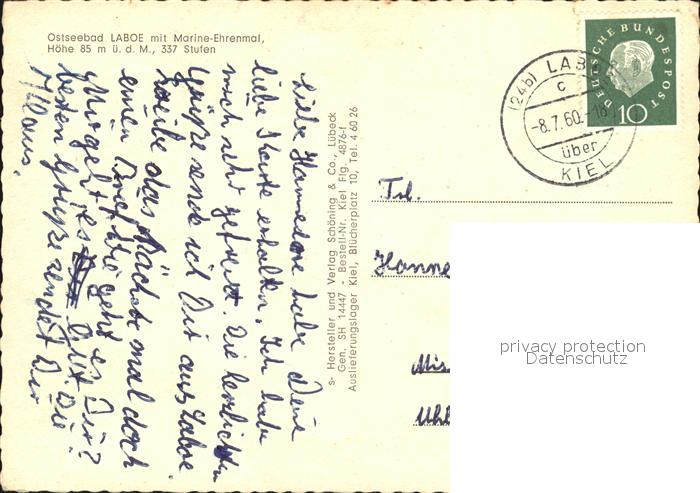 Ostseebad LABOE mit Marine-Ehrenmal,
Höhe 85 m ü. d. M., 337 Stufen
Liebe Hannelore habe Deine
liebe Karte erhalten, Ich habe
mich sehr gefreut. Die herzlichsten
Grüße sende ich Dir aus Laboe.
Schreibe das Nächste mal doch
einen Brief. Wie geht es Dir?
Mir geht es gut. Die
besten Grüße sendet Dir
Klaus.
s- Hersteller und Verlag Schöning & Co., Lübeck
Gen. SH 14447 - Bestell-Nr. Kiel Flg. 4876-f
Auslieferungslager Kiel, Blücherplatz 10, Tel. 4 60 26
DEUTSCHE BUNDESPOST
10
(24b) LABOE
c
-8.7.60.-18
über
KIEL
Frl.
Hanne
Mis
Uhl
privacy protection
Datenschutz